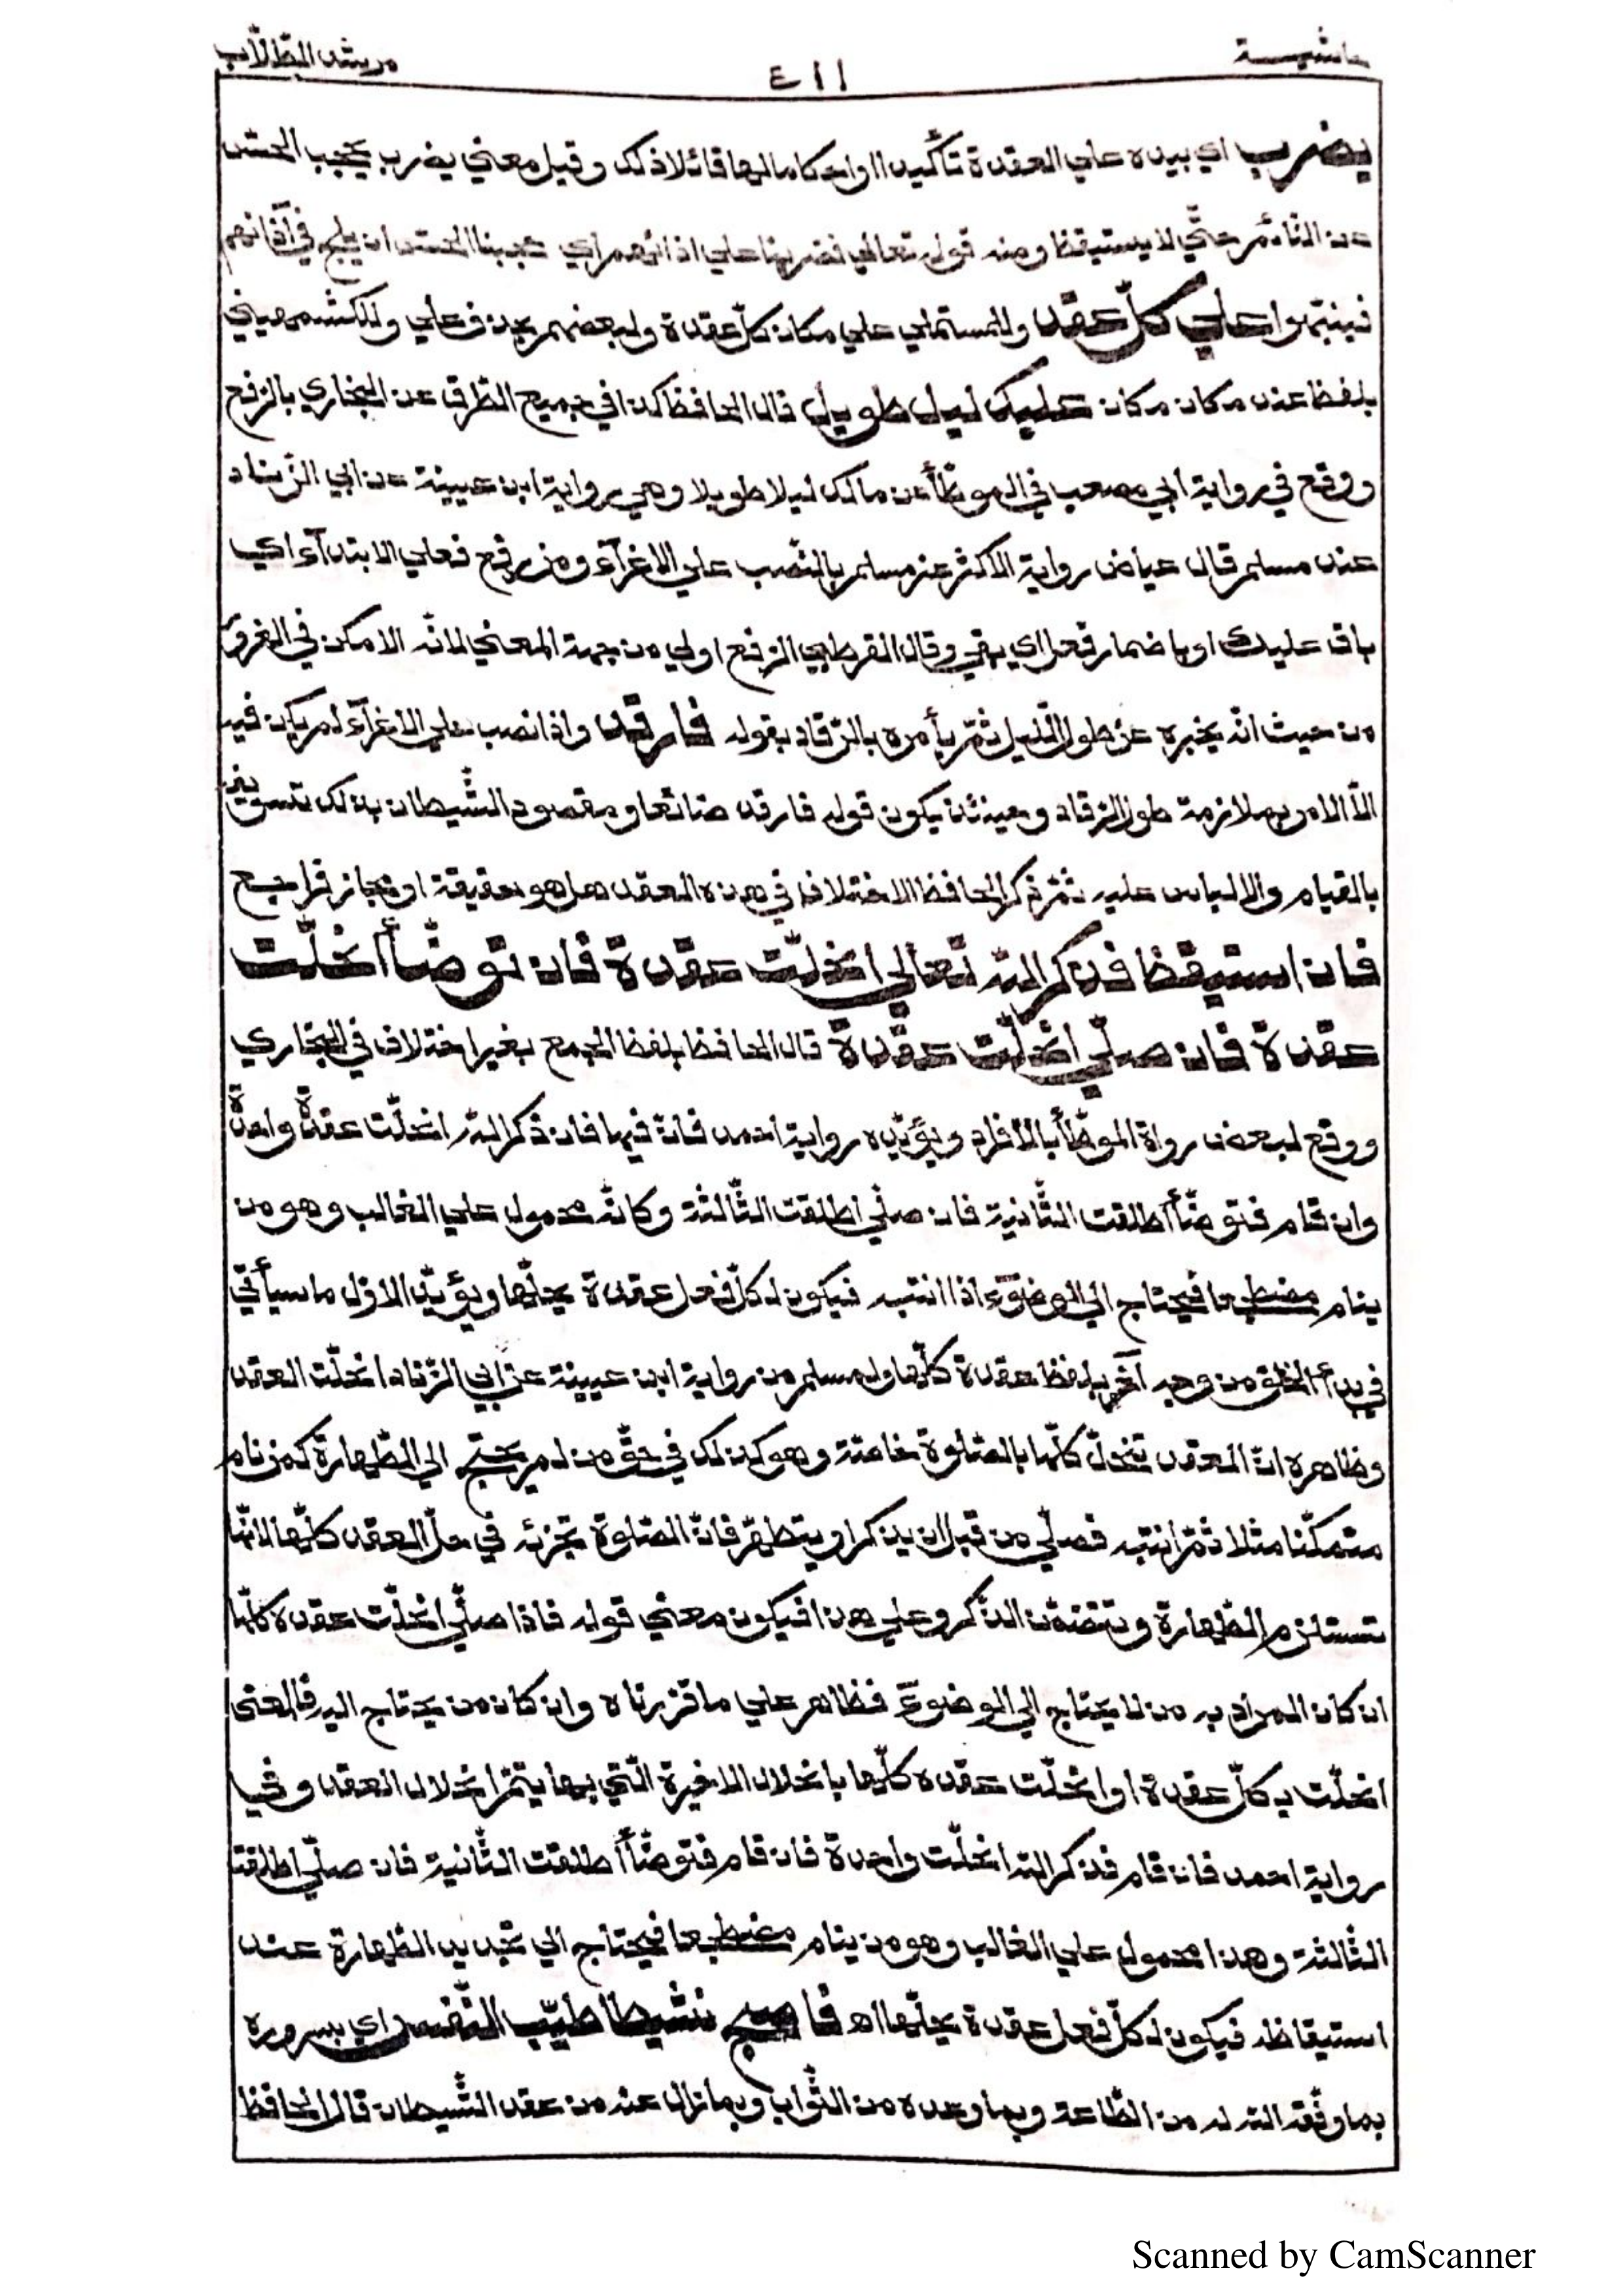 حاشيـــة
٤١١
مرشد الطّلّاب
يضرب اي بيده علي العقدة تأكيدا واحكاما لها قائلا ذلك وقيل معني يضرب يحجب الحسّ
عن النّائم حتّي لا يستيقظ ومنه قوله تعالي فضربنا علي اذانهم اي حجبنا الحسّ ان يلج في آذانهم
فينتبهوا علي كلّ عقدة وللمستملي علي مكان كلّ عقدة ولبعضهم بحذف علي وللكشميهني
بلفظ عند مكان مكان عليك ليل طويل قال الحافظ كذا في جميع الطّرق عن البخاري بالرّفع
ووقع في رواية ابي مصعب في الموطّأ عن مالك ليلا طويلا وهي رواية ابن عيينة عن ابي الزّناد
عند مسلم قال عياض رواية الاكثر عن مسلم بالنّصب علي الاغرآء ومن رفع فعلي الابتدآء اي
باق عليك او باضمار فعل اي بقي وقال القرطبي الرّفع اولي من جهة المعني لانّه الامكن في الغرور
من حيث انّه يخبره عن طول اللّيل ثمّ يأمره بالرّقاد بقوله فارقد واذا نصب علي الاغرآء لم يكن فيه
الّا الامر بملازمة طول الرّقاد وحينئذ يكون قوله فارقد ضائعا ومقصود الشّيطان بذلك تسويفه
بالقيام والالباس عليه ثمّ ذكر الحافظ الاختلاف في هذه العقد هل هو حقيقة او مجاز فراجع
فان استيقظ فذكر اللّه تعالي انحلّت عقدة فان توضّأ انحلّت
عقدة فان صلّي انحلّت عقدة قال الحافظ بلفظ الجمع بغير اختلاف في البخاري
ووقع لبعض رواة الموطّأ بالافراد ويؤيّده رواية احمد فانّ فيها فان ذكر اللّه انحلّت عقدة واحدة
وان قام فتوضّأ أطلقت الثّانية فان صلّي اطلقت الثّالثة وكانّه محمول علي الغالب وهو من
ينام مضطجعا فيحتاج الي الوضوء اذا انتبه فيكون لكلّ فعل عقدة يحلّها ويؤيّد الاوّل ما سيأتي
في بدأ الخلق من وجه آخر بلفظ عقدة كلّها ولمسلم من رواية ابن عيينة عن ابي الزّناد انحلّت العقد
وظاهره انّ العقد تنحلّ كلّها بالصّلوة خاصّة وهو كذلك في حقّ من لم يحتج الي الطّهارة كمن نام
متمكّنا مثلا ثمّ انتبه فصلّي من قبل ان يذكر او يتطهّر فانّ الصّلوة تجزئه في حلّ العقد كلّها لانّها
تستلزم الطّهارة وتتضمّن الذّكر وعلي هذا فيكون معني قوله فاذا صلّي انحلّت عقده كلّها
ان كان المراد به من لا يحتاج الي الوضوء فظاهر علي ما قرّرناه وان كان من يحتاج اليه فالمعني
انحلّت بكلّ عقدة او انحلّت عقده كلّها بانحلال الاخيرة الّتي بها يتمّ انحلال العقد وفي
رواية احمد فان قام فذكر اللّه انحلّت واحدة فان قام فتوضّأ أطلقت الثّانية فان صلّي اطلقت
الثّالثة وهذا محمول علي الغالب وهو من ينام مضطجعا فيحتاج الي تجديد الطّهارة عند
استيقاظه فيكون لكلّ فعل عقدة يحلّها اه فاصبح نشيطا طيّب النّفس اي بسروره
بما وفّقه اللّه له من الطّاعة وبما وعده من الثّواب وبما زال عنه من عقد الشّيطان قال الحافظ
Scanned by CamScanner